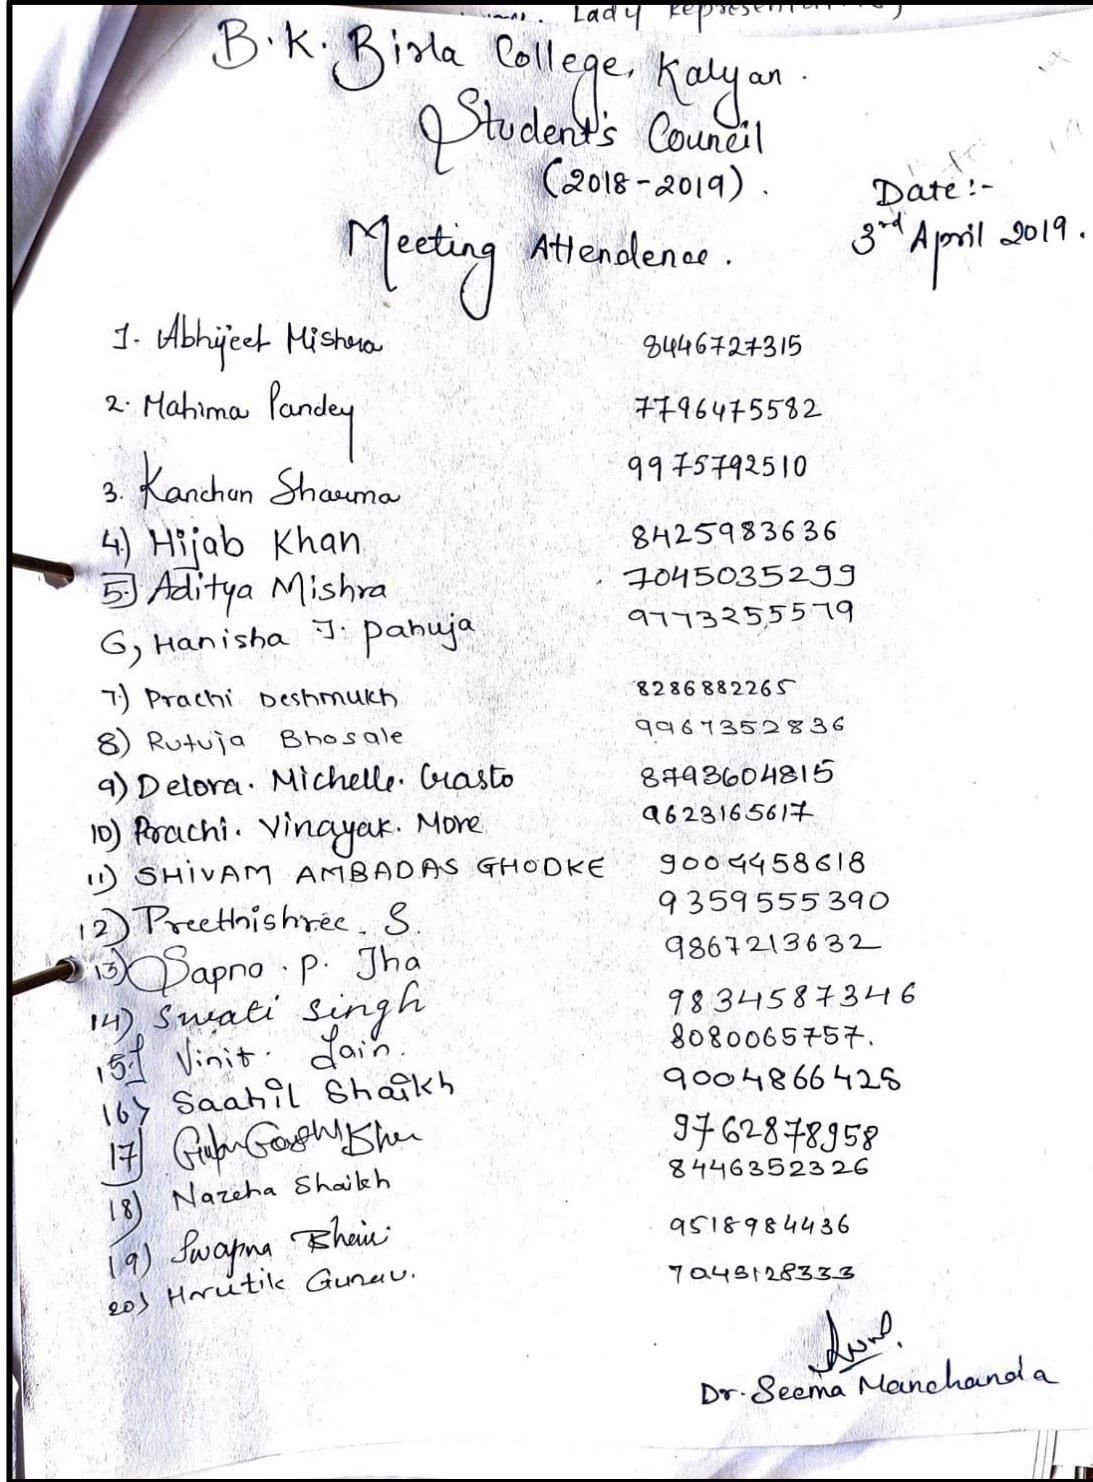 Lady Representative
B.K. Birla College, Kalyan.
Student's Council
(2018-2019).
Date:-
3rd April 2019.
Meeting Attendence.
1. Abhijeet Mishra 8446727315
2. Mahima Pandey 7796475582
3. Kanchan Sharma 9975792510
4) Hijab Khan 8425983636
5.) Aditya Mishra 7045035299
6, Hanisha J. Pahuja 9773255579
7) Prachi Deshmukh 8286882265
8) Rutuja Bhosale 9967352836
9) Delora. Michelle. Crasto 8793604815
10) Prachi. Vinayak. More 9623165617
11) SHIVAM AMBADAS GHODKE 9004458618
12) Preethishree. S. 9359555390
13) Sapna. P. Jha 9867213632
14) Swati Singh 9834587346
15] Vinit. Jain. 8080065757.
16> Saahil Shaikh 9004866428
17] 9762878958
18) Nazeha Shaikh 8446352326
19) Swapna 9518984436
20) Hrutik Gurav. 7045128333
Dr. Seema Manchanda